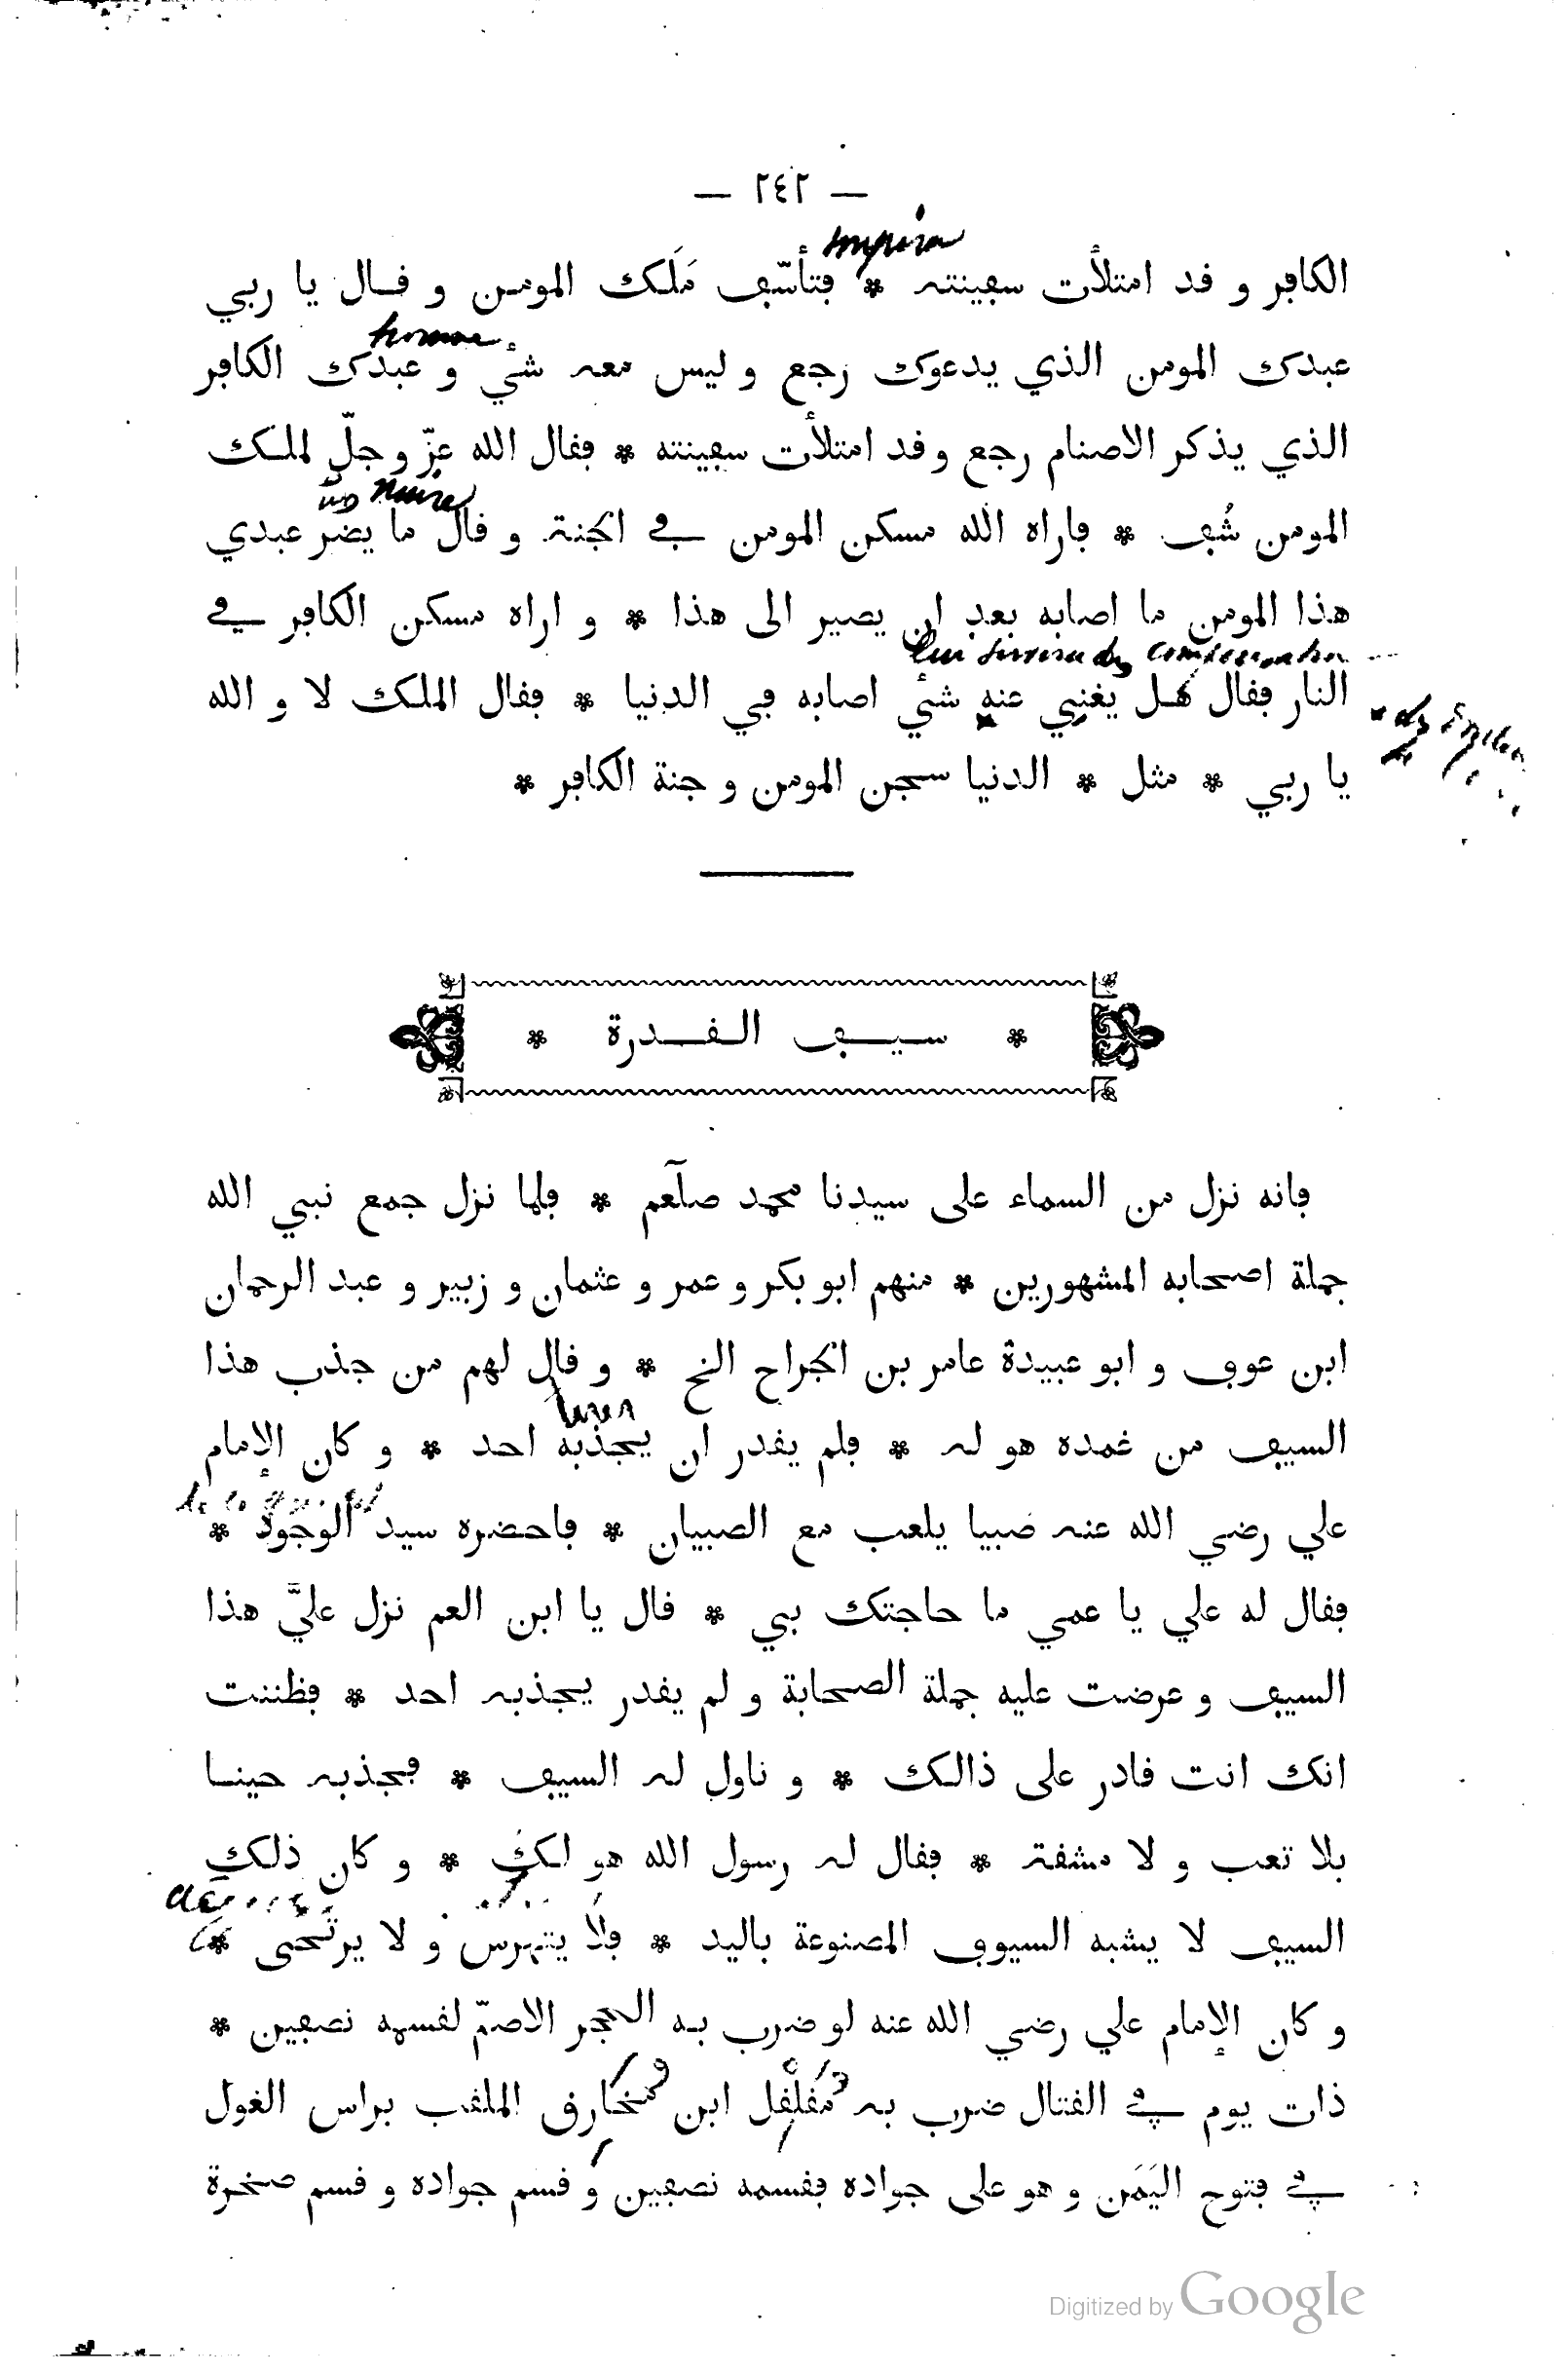 — ٢٤٢ —
الكافر و قد امتلأت سفينته * فتأسّف مَلَك المومن و قال يا ربي
عبدك المومن الذي يدعوك رجع و ليس معه شئ و عبدك الكافر
الذي يذكر الاصنام رجع و قد امتلأت سفينته * فقال الله عزّ و جلّ لملك
nuire
المومن شُف * فاراه الله مسكن المومن في الجنة و قال ما يضر عبدي
هذا المومن ما اصابه بعد ان يصير الى هذا * و اراه مسكن الكافر في
النار فقال هل يغني عنه شئ اصابه في الدنيا * فقال الملك لا و الله
يا ربي * مثل * الدنيا سجن المومن و جنة الكافر *
* سيف القدرة *
فانه نزل من السماء على سيدنا محمد صلعم * فلما نزل جمع نبي الله
جملة اصحابه المشهورين * منهم ابو بكر و عمر و عثمان و زبير و عبد الرحمان
ابن عوف و ابو عبيدة عامر بن الجراح الخ * و قال لهم من جذب هذا
السيف من غمده هو له * فلم يقدر ان يجذبه احد * و كان الإمام
علي رضي الله عنه صَبيا يلعب مع الصبيان * فاحضره سيد الوجود *
فقال له علي يا عمي ما حاجتك بي * قال يا ابن العم نزل عليَّ هذا
السيف و عرضت عليه جملة الصحابة و لم يقدر يجذبه احد * فظننت
انك انت قادر على ذالك * و ناول له السيف * فجذبه حينا
بلا تعب و لا مشقة * فقال له رسول الله هو لك * و كان ذلك
السيف لا يشبه السيوف المصنوعة باليد * فلا يتهرس و لا يرتخى *
و كان الإمام علي رضي الله عنه لو ضرب به الحجر الاصمّ لقسمه نصفين *
ذات يوم في القتال ضرب به مُقَلْقِل ابن مُخَارِق الملقب براس الغول
في فتوح اليَمَن و هو على جواده فقسمه نصفين و قسم جواده و قسم صخرة
Digitized by Google